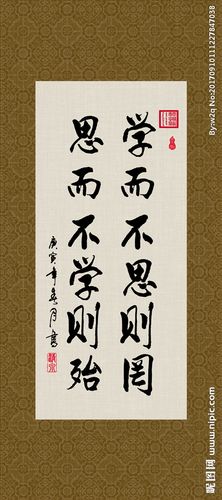 学而不思则罔
思而不学则殆
庚寅年春月书
By:w2q No:20170910111227847038
昵图网 www.nipic.com